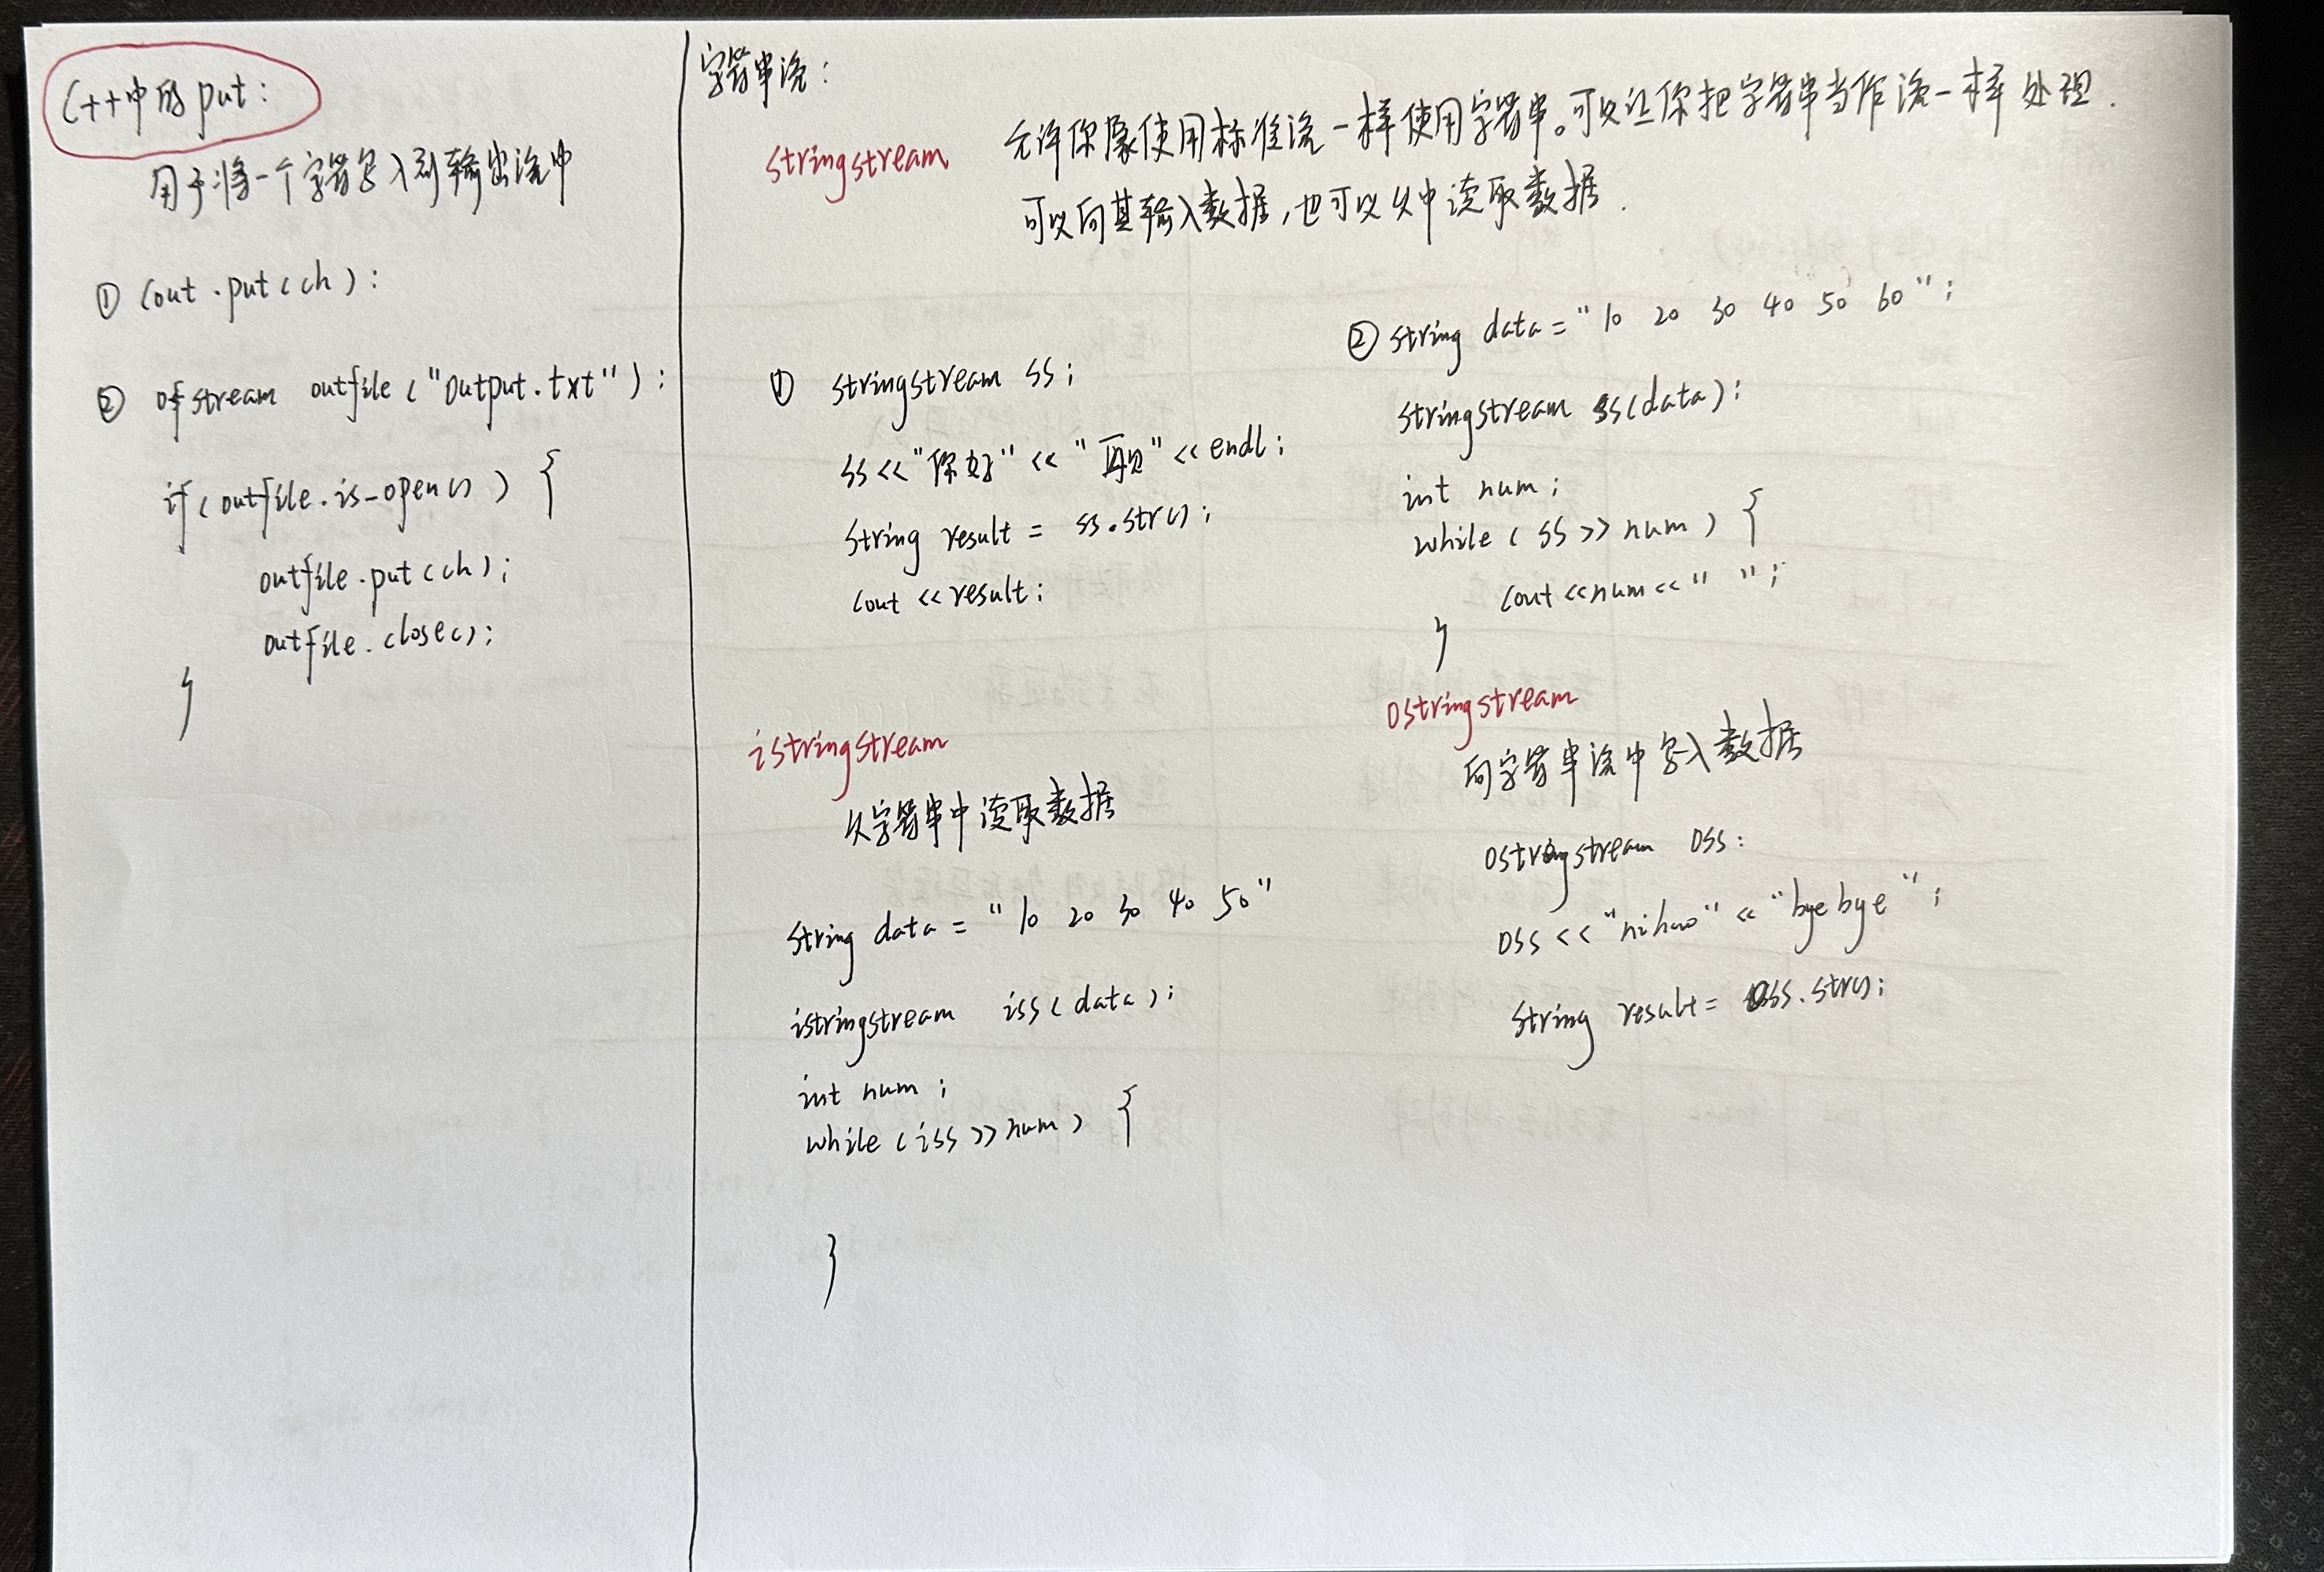 C++中的put:
用于将一个字符写入到输出流中
① cout.put(ch);
② ofstream outfile("output.txt");
if(outfile.is_open()) {
outfile.put(ch);
outfile.close();
}
字符串流:
stringstream
允许你像使用标准流一样使用字符串。可以让你把字符串当作流一样处理.
可以向其输入数据,也可以从中读取数据.
① stringstream ss;
ss<<"你好"<<"再见"<<endl;
string result = ss.str();
cout<<result;
② string data="10 20 30 40 50 60";
stringstream ss(data);
int num;
while(ss>>num) {
cout<<num<<" ";
}
istringstream
从字符串中读取数据
string data = "10 20 30 40 50"
istringstream iss(data);
int num;
while(iss>>num) {
}
ostringstream
向字符串流中写入数据
ostringstream oss;
oss<<"nihao"<<"byebye";
string result= oss.str();